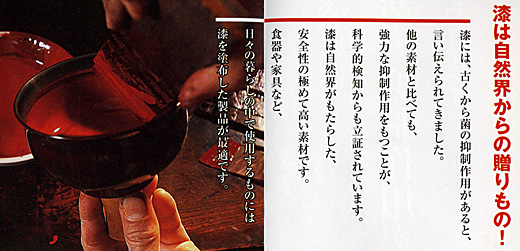 漆は自然界からの贈りもの!
漆には、古くから菌の抑制作用があると、
言い伝えられてきました。
他の素材と比べても、
強力な抑制作用をもつことが、
科学的検知からも立証されています。
漆は自然界がもたらした、
安全性の極めて高い素材です。
食器や家具など、
日々の暮らしの中で使用するものには
漆を塗布した製品が最適です。